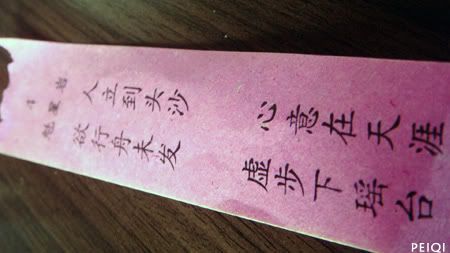 人立到头沙
欲行舟未发
心意在天涯
虚步下瑶台
PEIQI